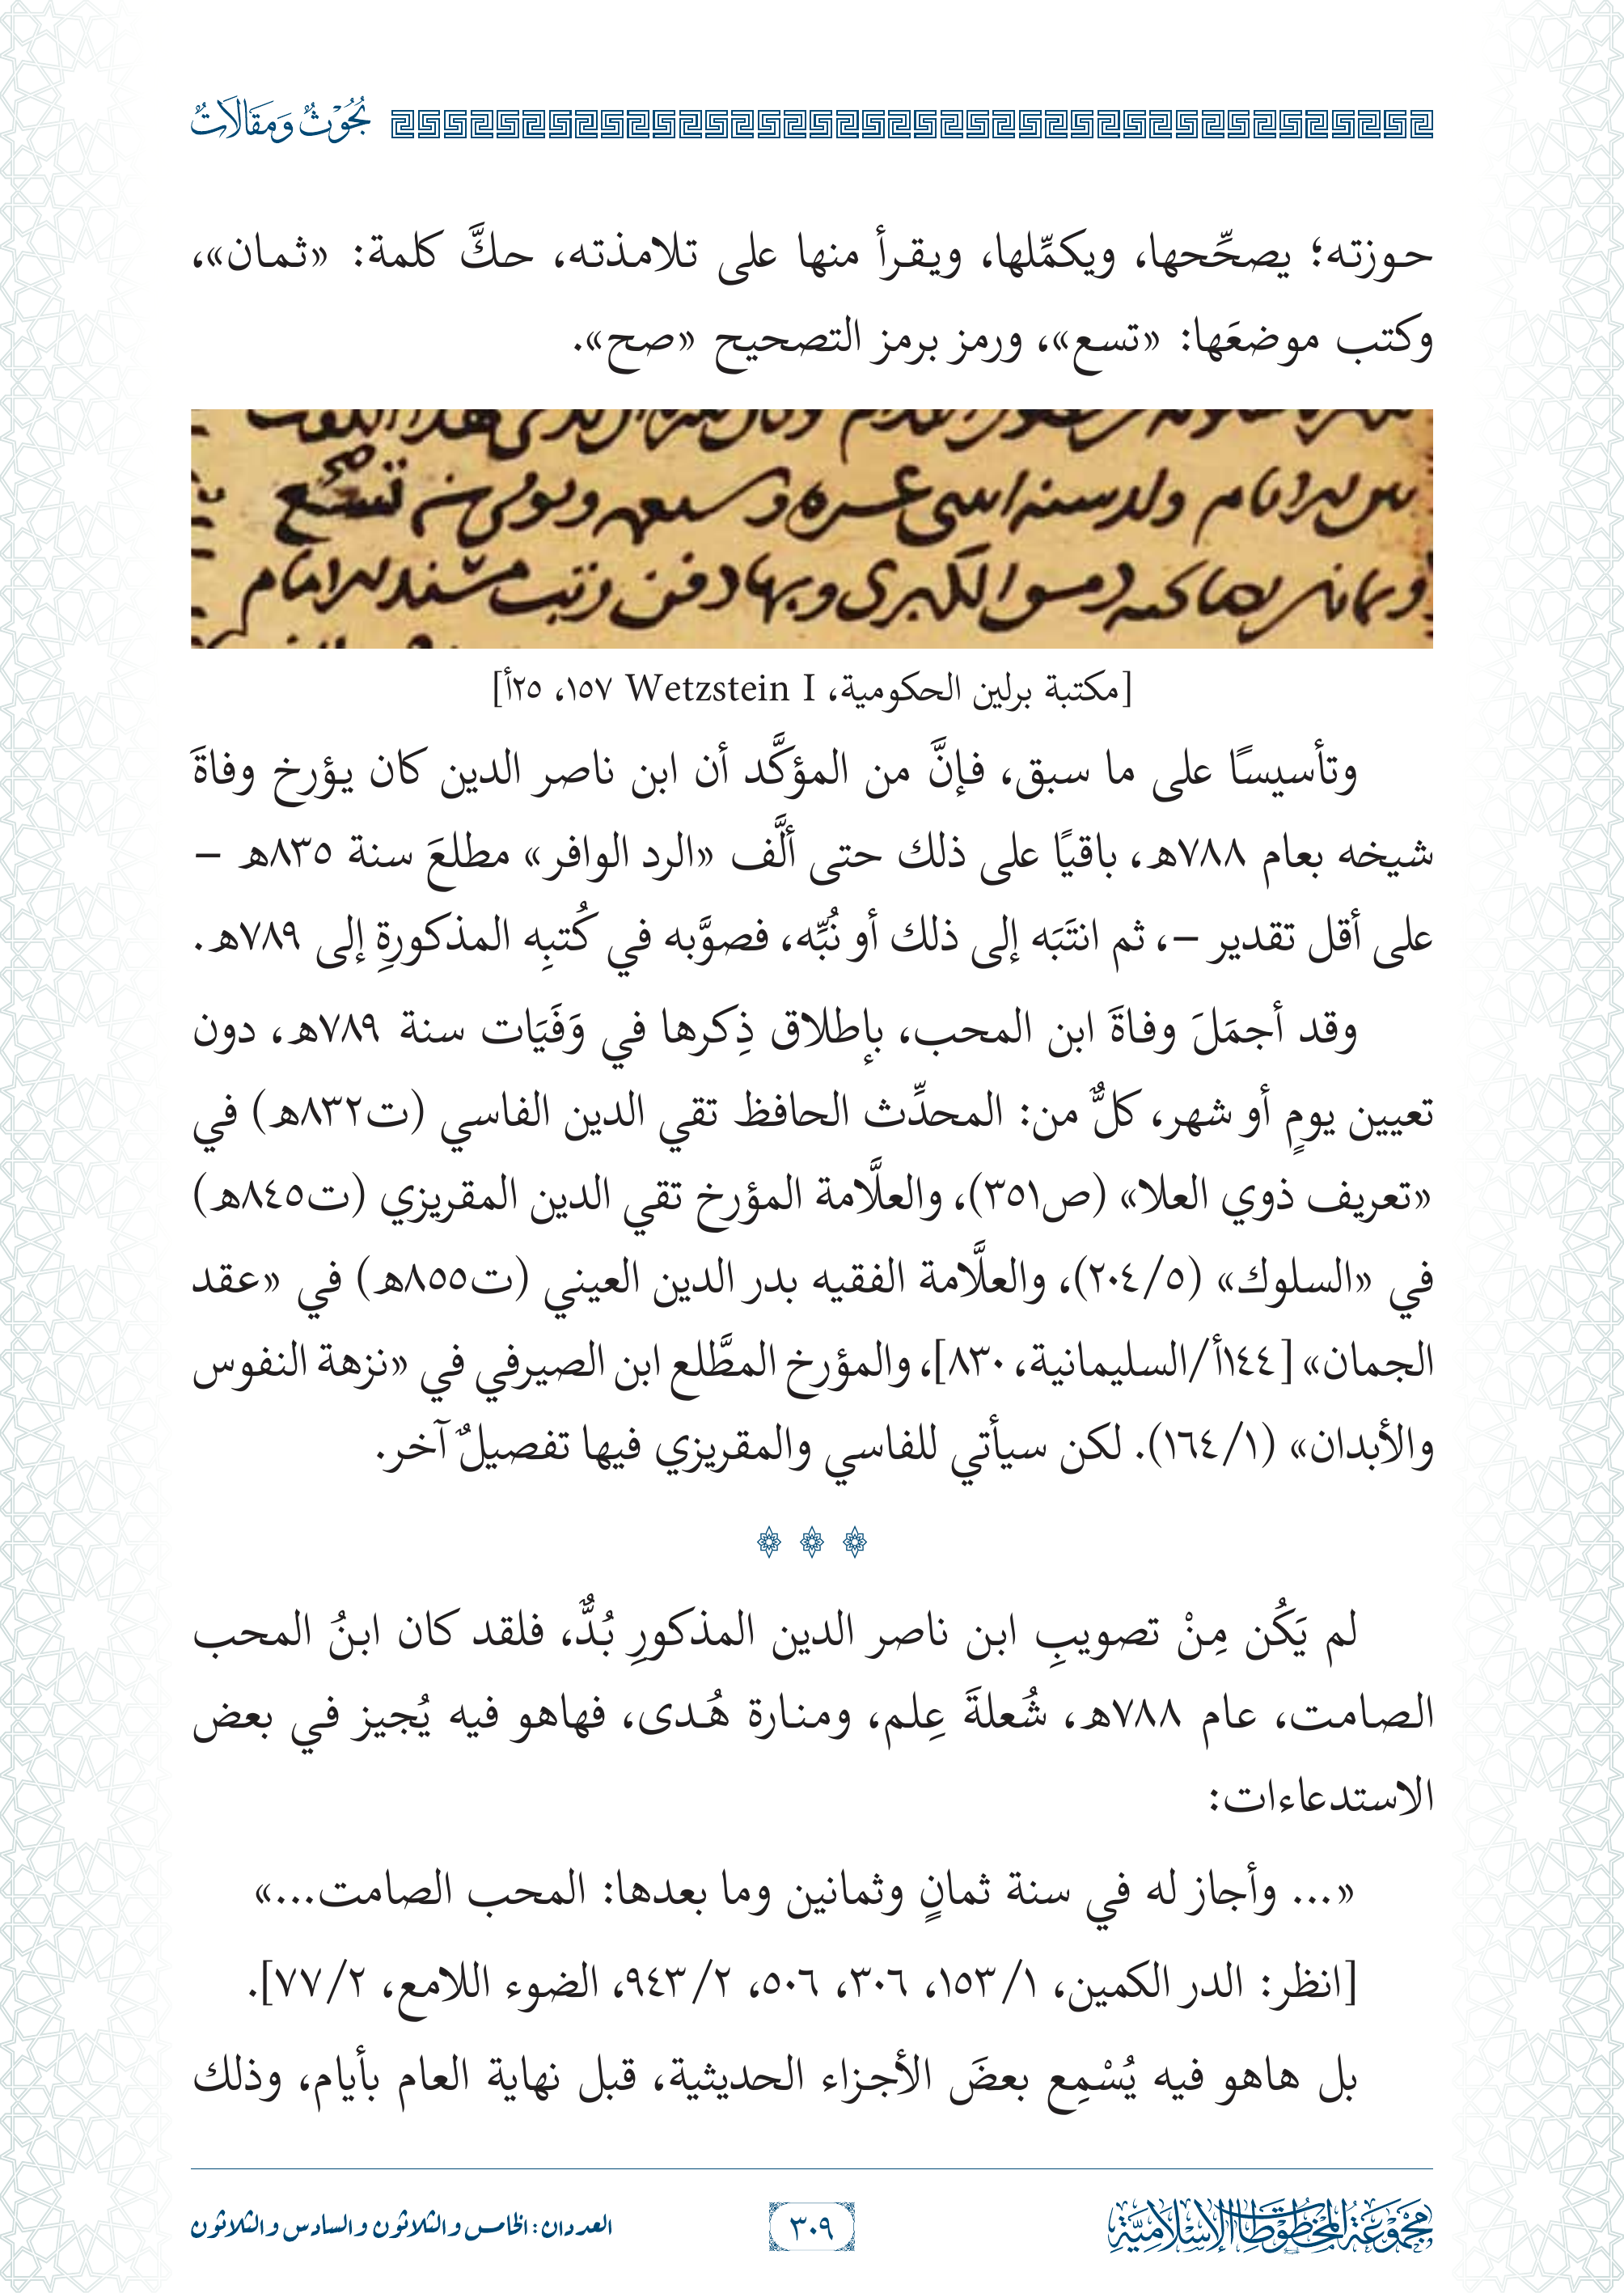 بُحُوْثٌ وَمَقَالَاتٌ
حوزته؛ يصحِّحها، ويكمِّلها، ويقرأ منها على تلامذته، حكَّ كلمة: «ثمان»،
وكتب موضعَها: «تسع»، ورمز برمز التصحيح «صح».
صح
تسع
[مكتبة برلين الحكومية، Wetzstein I ١٥٧، ٢٥أ]
وتأسيسًا على ما سبق، فإنَّ من المؤكَّد أن ابن ناصر الدين كان يؤرخ وفاةَ
شيخه بعام ٧٨٨هـ، باقيًا على ذلك حتى ألَّف «الرد الوافر» مطلعَ سنة ٨٣٥هـ –
على أقل تقدير –، ثم انتَبَه إلى ذلك أو نُبِّه، فصوَّبه في كُتبِه المذكورةِ إلى ٧٨٩هـ.
وقد أجمَلَ وفاةَ ابن المحب، بإطلاق ذِكرها في وَفَيَات سنة ٧٨٩هـ، دون
تعيين يومٍ أو شهر، كلٌّ من: المحدِّث الحافظ تقي الدين الفاسي (ت٨٣٢هـ) في
«تعريف ذوي العلا» (ص٣٥١)، والعلَّامة المؤرخ تقي الدين المقريزي (ت٨٤٥هـ)
في «السلوك» (٢٠٤/٥)، والعلَّامة الفقيه بدر الدين العيني (ت٨٥٥هـ) في «عقد
الجمان» [١٤٤أ/السليمانية، ٨٣٠]، والمؤرخ المطَّلع ابن الصيرفي في «نزهة النفوس
والأبدان» (١٦٤/١). لكن سيأتي للفاسي والمقريزي فيها تفصيلٌ آخر.
لم يَكُن مِنْ تصويبِ ابن ناصر الدين المذكورِ بُدٌّ، فلقد كان ابنُ المحب
الصامت، عام ٧٨٨هـ، شُعلةَ عِلم، ومنارة هُدى، فهاهو فيه يُجيز في بعض
الاستدعاءات:
«... وأجاز له في سنة ثمانٍ وثمانين وما بعدها: المحب الصامت...»
[انظر: الدر الكمين، ١٥٣/١، ٣٠٦، ٥٠٦، ٩٤٣/٢، الضوء اللامع، ٧٧/٢].
بل هاهو فيه يُسْمِع بعضَ الأجزاء الحديثية، قبل نهاية العام بأيام، وذلك
مَجْمُوْعَةُ المَخْطُوْطَاتِ الإِسْلَامِيَّةِ
٣٠٩
العددان: الخامس والثلاثون والسادس والثلاثون